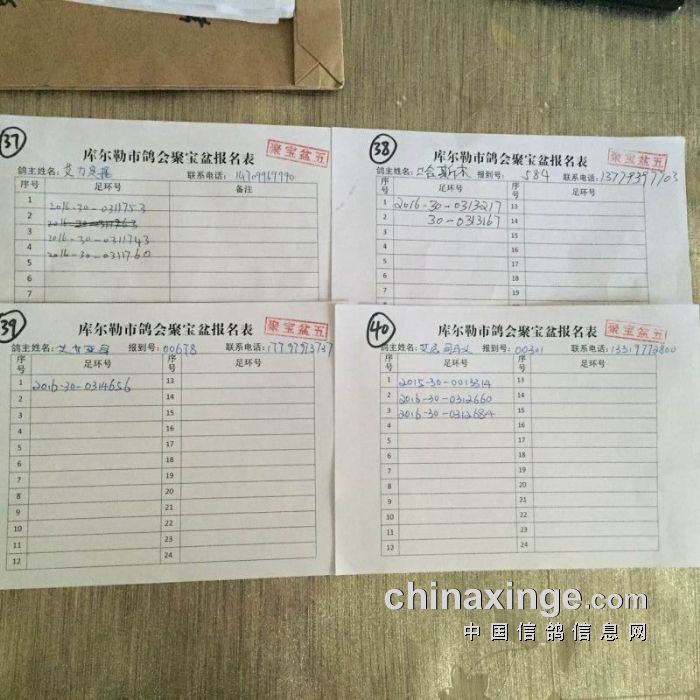 37
库尔勒市鸽会聚宝盆报名表
聚宝盆五
鸽主姓名： 联系电话：
序号 足环号 备注
1 2016-30-0311753
2 2016-30-0311763
3 2016-30-0311743
4 2016-30-0311760
5
6
7
38
库尔勒市鸽会聚宝盆报名表
聚宝盆五
鸽主姓名：哈斯木 报到号：584 联系电话：
序号 足环号 序号 足环号
1 2016-30-0313217 13
2 30-0313167 14
3 15
4 16
5 17
6 18
7 19
39
库尔勒市鸽会聚宝盆报名表
聚宝盆五
鸽主姓名： 报到号：00678 联系电话：17797973737
序号 足环号 序号 足环号
1 2016-30-0314656 13
2 14
3 15
4 16
5 17
6 18
7 19
8 20
9 21
10 22
11 23
12 24
40
库尔勒市鸽会聚宝盆报名表
聚宝盆五
鸽主姓名： 报到号：00301 联系电话：13319772800
序号 足环号 序号 足环号
1 2015-30-0013314 13
2 2016-30-0312660 14
3 2016-30-0312684 15
4 16
5 17
6 18
7 19
8 20
9 21
10 22
11 23
12 24
chinaxinge.com
中国信鸽信息网